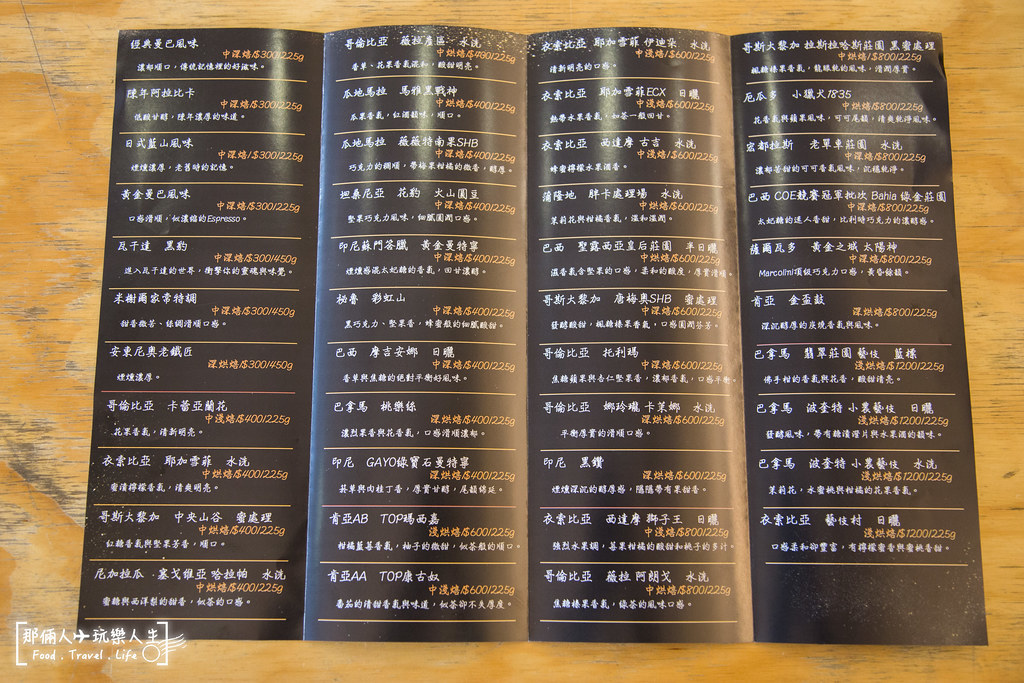 經典曼巴風味
中深焙/$300/225g
濃郁順口，傳統記憶裡的好滋味。
陳年阿拉比卡
中深焙/$300/225g
低酸甘醇，陳年濃厚的味道。
日式藍山風味
中深焙/$300/225g
煙燻濃厚，老舊時的記憶。
黃金曼巴風味
中深焙/$300/225g
口感滑順，似濃縮的Espresso。
瓦干達 黑豹
中深焙/$300/450g
進入瓦干達的世界，衝擊你的靈魂與味覺。
米榭爾家常特調
中深焙/$300/450g
甜香微苦、絲綢滑順口感。
安東尼奧老鐵匠
深烘焙/$300/450g
煙燻濃厚。
哥倫比亞 卡蕾亞蘭花
中淺焙/$400/225g
花果香氣，清新明亮。
衣索比亞 耶加雪菲 水洗
中烘焙/$400/225g
蜜漬檸檬香氣，清爽明亮。
哥斯大黎加 中央山谷 蜜處理
中烘焙/$400/225g
紅糖香氣與堅果芳香，順口。
尼加拉瓜 塞戈維亞 哈拉帕 水洗
中烘焙/$400/225g
蜜糖與西洋梨的甜香，似茶的口感。
哥倫比亞 薇拉產區 水洗
中烘焙/$400/225g
香草、花果香氣混和，酸甜明亮。
瓜地馬拉 馬雅黑戰神
中烘焙/$400/225g
瓜果香氣，紅酒韻味，順口。
瓜地馬拉 薇薇特南果SHB
中深焙/$400/225g
巧克力的稠順，帶梅果柑橘的微香，醇厚。
坦桑尼亞 花豹 火山圓豆
中深焙/$400/225g
堅果巧克力風味，細膩圓潤口感。
印尼蘇門答臘 黃金曼特寧
中深焙/$400/225g
煙燻感混太妃糖的香氣，回甘濃醇。
秘魯 彩虹山
中深焙/$400/225g
黑巧克力、堅果香，蜂蜜般的細膩酸甜。
巴西 摩吉安娜 日曬
中深焙/$400/225g
香草與焦糖的絕對平衡好風味。
巴拿馬 桃樂絲
深烘焙/$400/225g
濃烈果香與花香氣，口感滑順濃郁。
印尼 GAYO綠寶石曼特寧
深烘焙/$400/225g
菸草與肉桂丁香，厚實甘醇，尾韻綿延。
肯亞AB TOP瑪西嘉
淺烘焙/$600/225g
柑橘藍莓香氣，柚子的微甜，似茶般的順口。
肯亞AA TOP康古奴
中淺焙/$600/225g
番茄的清甜香氣與味道，似茶卻不失厚度。
衣索比亞 耶加雪菲 伊迪朵 水洗
中淺焙/$600/225g
清新明亮的口感。
衣索比亞 耶加雪菲ECX 日曬
中淺焙/$600/225g
熱帶水果香氣，如茶一般回甘。
衣索比亞 西達摩 古吉 水洗
中淺焙/$600/225g
蜂蜜檸檬水果酒香。
蒲隆地 胖卡處理場 水洗
中烘焙/$600/225g
茉莉花與柑橘香氣，溫和溫潤。
巴西 聖露西亞皇后莊園 半日曬
中烘焙/$600/225g
溫香氣含堅果的口感，柔和的酸度，厚實滑順。
哥斯大黎加 唐梅奧SHB 蜜處理
中深焙/$600/225g
發酵酸甜，楓糖榛果香氣，口感圓潤芬芳。
哥倫比亞 托利瑪
中深焙/$600/225g
焦糖蘋果與杏仁堅果香，濃郁香氣，口感平衡。
哥倫比亞 娜玲瓏 卡茉娜 水洗
深烘焙/$600/225g
平衡厚實的滑順口感。
印尼 黑鑽
深烘焙/$600/225g
煙燻深沉的醇厚感，隱隱帶有果甜香。
衣索比亞 西達摩 獅子王 日曬
中淺焙/$800/225g
強烈水果調，莓果柑橘的酸甜和桃子的多汁。
哥倫比亞 薇拉 阿朗戈 水洗
中深焙/$800/225g
焦糖榛果香氣，綠茶的風味口感。
哥斯大黎加 拉斯拉哈斯莊園 黑蜜處理
中烘焙/$800/225g
楓糖榛果香氣，龍眼乾的風味，清潤厚實。
厄瓜多 小獵犬1835
中烘焙/$800/225g
花香氣與蘋果風味，可可尾韻，清爽乾淨風味。
宏都拉斯 老單車莊園 水洗
中深焙/$800/225g
濃郁苦甜的可可香氣風味，沉穩乾淨。
巴西COE競賽冠軍批次 Bahia 綠金莊園
中深焙/$800/225g
太妃糖的迷人香甜，比利時巧克力的濃醇感。
薩爾瓦多 黃金之城 太陽神
中深焙/$800/225g
Marcolini頂級巧克力口感，黃昏餘韻。
肯亞 金盃鼓
深烘焙/$800/225g
深沉醇厚的炭燒香氣與風味。
巴拿馬 翡翠莊園 藝伎 藍標
淺烘焙/$1200/225g
佛手柑的香氣與花香，酸甜清亮。
巴拿馬 波奎特 小農藝伎 日曬
淺烘焙/$1200/225g
發酵風味，帶有糖漬澄片與水果酒的韻味。
巴拿馬 波奎特 小農藝伎 水洗
淺烘焙/$1200/225g
茉莉花，水蜜桃與柑橘的花果香氣。
衣索比亞 藝伎村 日曬
淺烘焙/$1200/225g
口感柔和卻豐富，有檸檬蜜香與蜜桃香甜。
那倆人玩樂人生
Food . Travel . Life